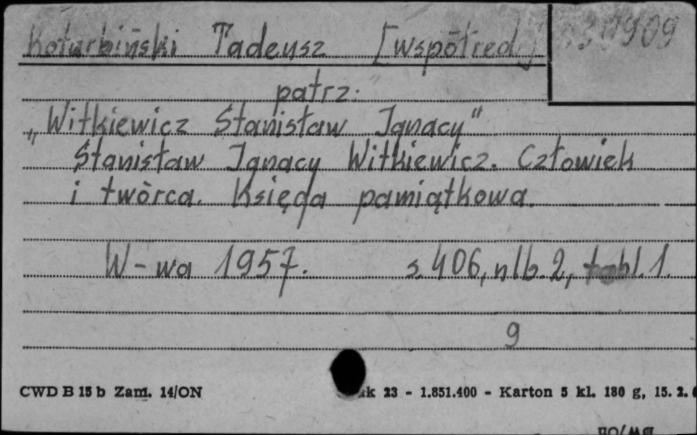 Kotarbiński Tadeusz [współred.]
patrz:
„Witkiewicz Stanisław Ignacy"
Stanisław Ignacy Witkiewicz. Człowiek
i twórca. Księga pamiątkowa.
W-wa 1957. s. 406, nlb. 2, tabl. 1.
9
CWD B 15 b Zam. 14/ON 23 - 1.851.400 - Karton 5 kl. 180 g, 15. 2.